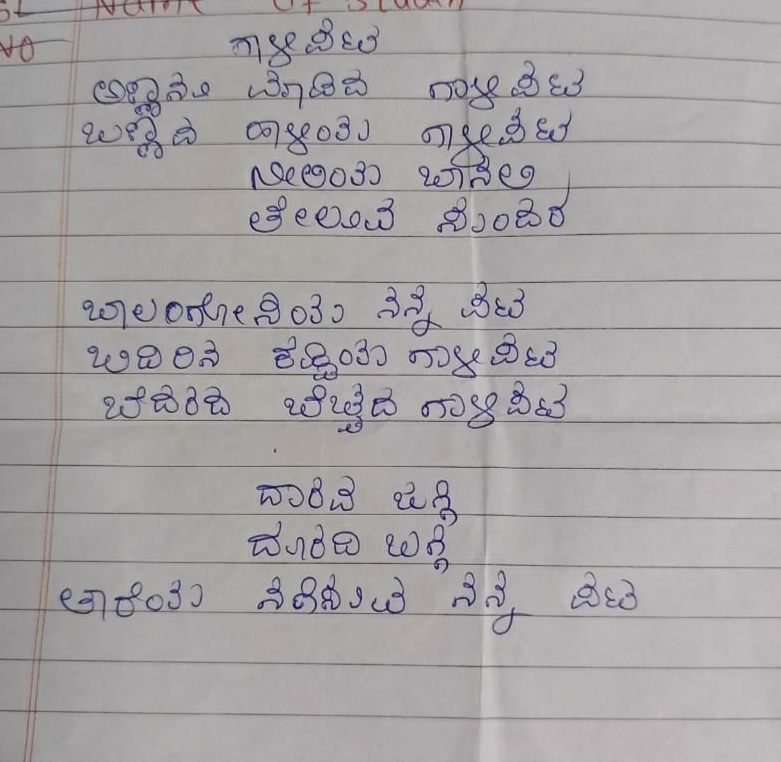 SL Name Of Studen
NO ಗಾಳಿಪಟ
ಅಣ್ಣನು ಮಾಡಿದ ಗಾಳಿಪಟ
ಬಣ್ಣದ ಹಾಳೆಯ ಗಾಳಿಪಟ
ನೀಲಿಯ ಬಾನಲಿ
ತೇಲುವ ಸುಂದರ
ಬಾಲಂಗೋಚಿಯ ನನ್ನ ಪಟ
ಬಿದಿರಿನ ಕಡ್ಡಿಯ ಗಾಳಿಪಟ
ಬೆದರದ ಬೆಚ್ಚದ ಗಾಳಿಪಟ
ದಾರವ ಜಗ್ಗಿ
ದೂರದಿ ಬಗ್ಗಿ
ತಾರೆಯ ನಗಿಸುವ ನನ್ನ ಪಟ